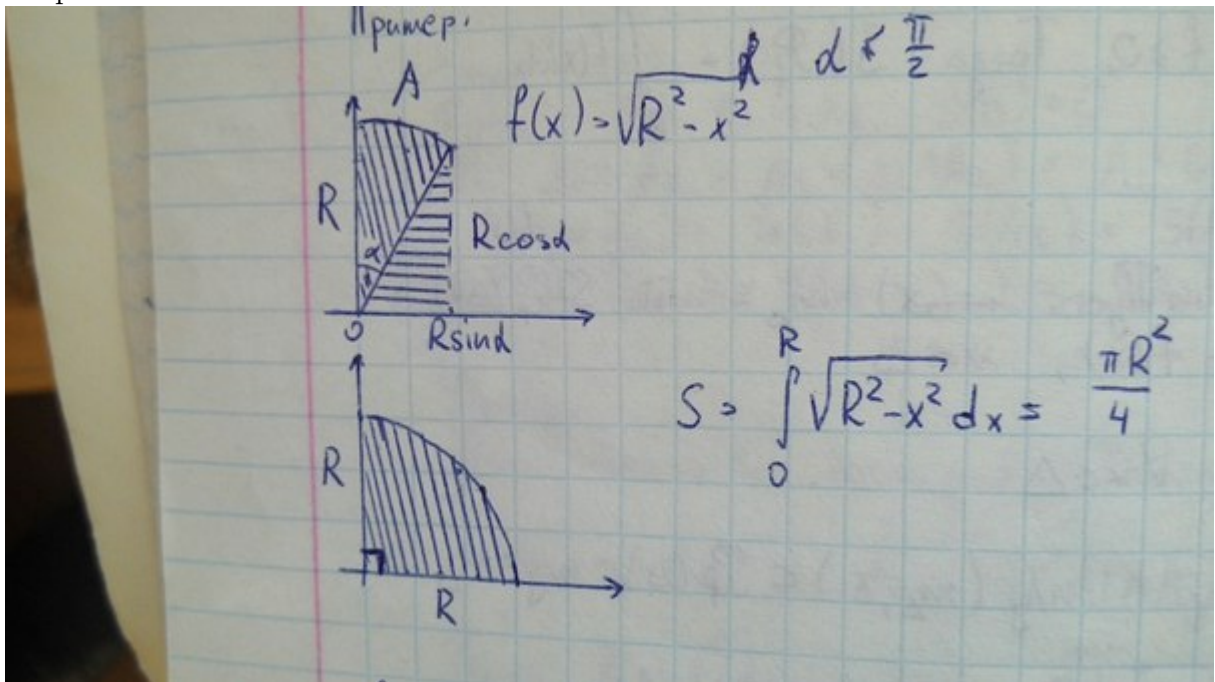 Пример.
α < π/2
A
f(x) = √(R² - x²)
R
α
R cosα
0
R sinα
S = ∫₀ᴿ √(R² - x²) dx = πR²/4
R
R